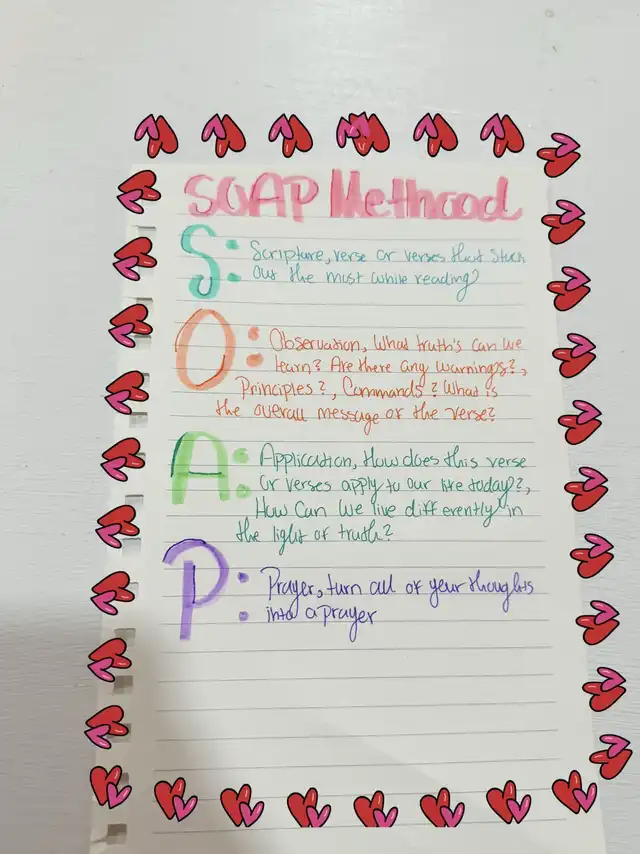 SOAP Methood
S: Scripture, verse or verses that stuck
out the most while reading?
O: Observation, What truth's can we
learn? Are there any warnings?,
Principles?, Commands? What is
the overall message of the verse?
A: Application, How does this verse
or verses apply to our life today?,
How can we live differently in
the light of truth?
P: Prayer, turn all of your thoughts
into a prayer